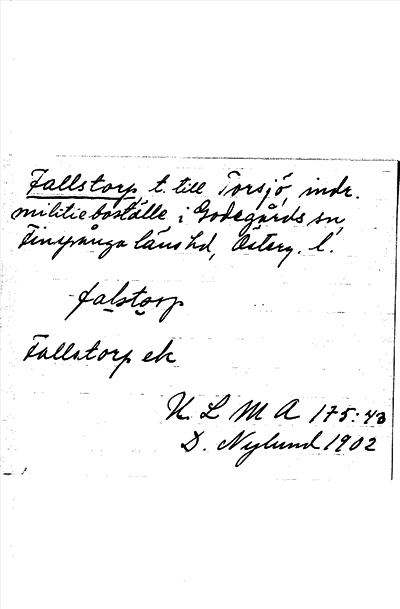 Fallstorp t. till Torsjö, indr.
militieboställe i Godegårds sn,
Finspånga läns hd, Österg. l.
falstorp
Fallstorp ek
K. L M A 175:43
D. Nylund 1902